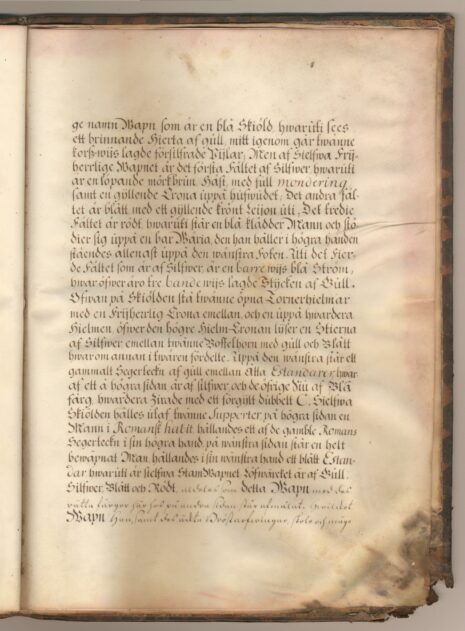 ge namn Wapn som är en blå Skiöld, hwaruti sees
ett brinnande Hierta af gull, mitt igenom går twänne
korß-wiis lagde försilfrade Pijlar; Men af Sielfwa Frij-
herrlige Wapnet är det första Fältet af Silfwer, hwaruti
är en löpande mörkbrun Häst, med full mondering
samt en gyllende Crona uppå hufwudet; Det andra Fäl-
tet är blått med ett gyllende krönt Leijon uti, Det tredie
Fältet är rödt, hwaruti står en blå klädder Mann och stö
dier sig uppå en bar Waria, den han håller i högra handen
ståendes allenast uppå den wänstra Foten. Uti det Fier-
de Fältet som är af Silfwer, är en barre wijs blå Ström,
hwar öfwer äro tre bande wijs lagde Stycken af Gull.
Ofwan på Skiölden stå twänne öpna Tornerhielmar
med en Frijherrlig Crona emellan, och en uppå hwardera
Hielmen, öfwer den högre Hielm-Cronan lyser en Stierna
af Silfwer emellan twänne Boffelhorn med gull och Blått
hwarom annan i twären fördelte. Uppå den wänstra står ett
gammalt Segerteckn af gull emellan Åtta Estandarer, hwar
af ett å högra sidan är af silfwer, och de öfrige Siu af Blå
färg, hwardera Zirade med ett förgyllt dubbelt C. Sielfwa
Skiölden hålles utaf twänne Supporter på högra sidan en
Mann i Romansk habit hållandes ett af de gamble Romans
Segerteckn i sin högra hand, på wänstra sidan står en helt
bewäpnat Man, hållandes i sin wänstra hand ett blått Estan-
dar hwaruti är sielfwa StamWapnet. Löfwärcket är af Gull,
Silfwer, Blått och Rödt, aldeles som detta Wapn med des
rätta färgor här hos på andra sidan står afmålat.
Wapn